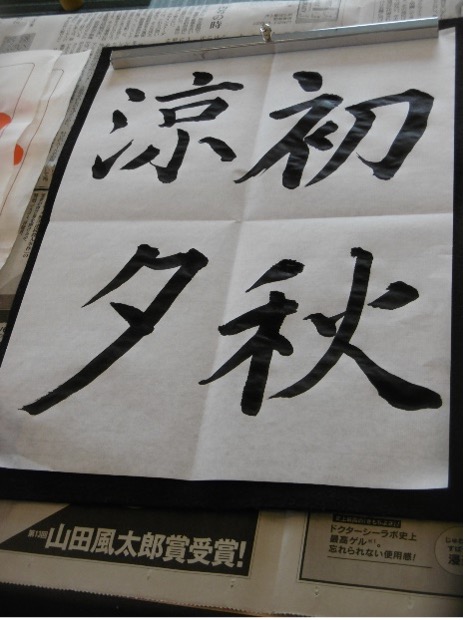 初秋
涼夕
第13回 山田風太郎賞受賞!
ドクターシーラボ史上
最高ゲル※1。
忘れられない使用感!